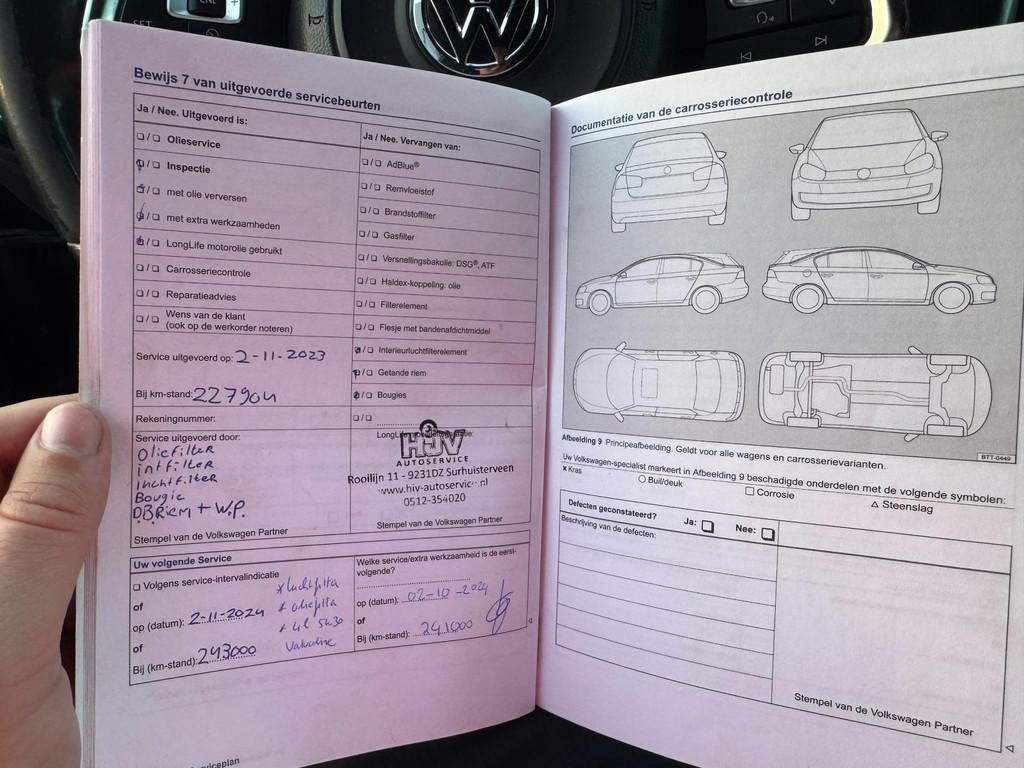 Bewijs 7 van uitgevoerde servicebeurten
Ja / Nee. Uitgevoerd is:
/ Olieservice
/ Inspectie
/ met olie verversen
/ met extra werkzaamheden
/ LongLife motorolie gebruikt
/ Carrosseriecontrole
/ Reparatieadvies
/ Wens van de klant
(ook op de werkorder noteren)
Service uitgevoerd op: 2-11-2023
Bij km-stand: 227904
Rekeningnummer:
Service uitgevoerd door:
Oliefilter
intfilter
luchtfilter
Bougie
D.B.Riem + W.P.
Stempel van de Volkswagen Partner
Ja / Nee. Vervangen van:
/ AdBlue®
/ Remvloeistof
/ Brandstoffilter
/ Gasfilter
/ Versnellingsbakolie: DSG®, ATF
/ Haldex-koppeling: olie
/ Filterelement
/ Flesje met bandenafdichtmiddel
/ Interieurluchtfilterelement
/ Getande riem
/ Bougies
/
HJV
AUTOSERVICE
Rooilijn 11 - 9231DZ Surhuisterveen
www.hjv-autoservice.nl
0512-354020
Stempel van de Volkswagen Partner
Uw volgende Service
Volgens service-intervalindicatie
of
op (datum): 2-11-2024
of
Bij (km-stand): 243000
x luchtfilta
+ oliefilta
+ 4l 5w30
Valvoline
Welke service/extra werkzaamheid is de eerst-
volgende?
op (datum): 02-10-2024
of
Bij (km-stand): 241000
Documentatie van de carrosseriecontrole
BTT-0449
Afbeelding 9 Principeafbeelding. Geldt voor alle wagens en carrosserievarianten.
Uw Volkswagen-specialist markeert in Afbeelding 9 beschadigde onderdelen met de volgende symbolen:
x Kras
Buil/deuk
Corrosie
Steenslag
Defecten geconstateerd? Ja: Nee:
Beschrijving van de defecten:
Stempel van de Volkswagen Partner